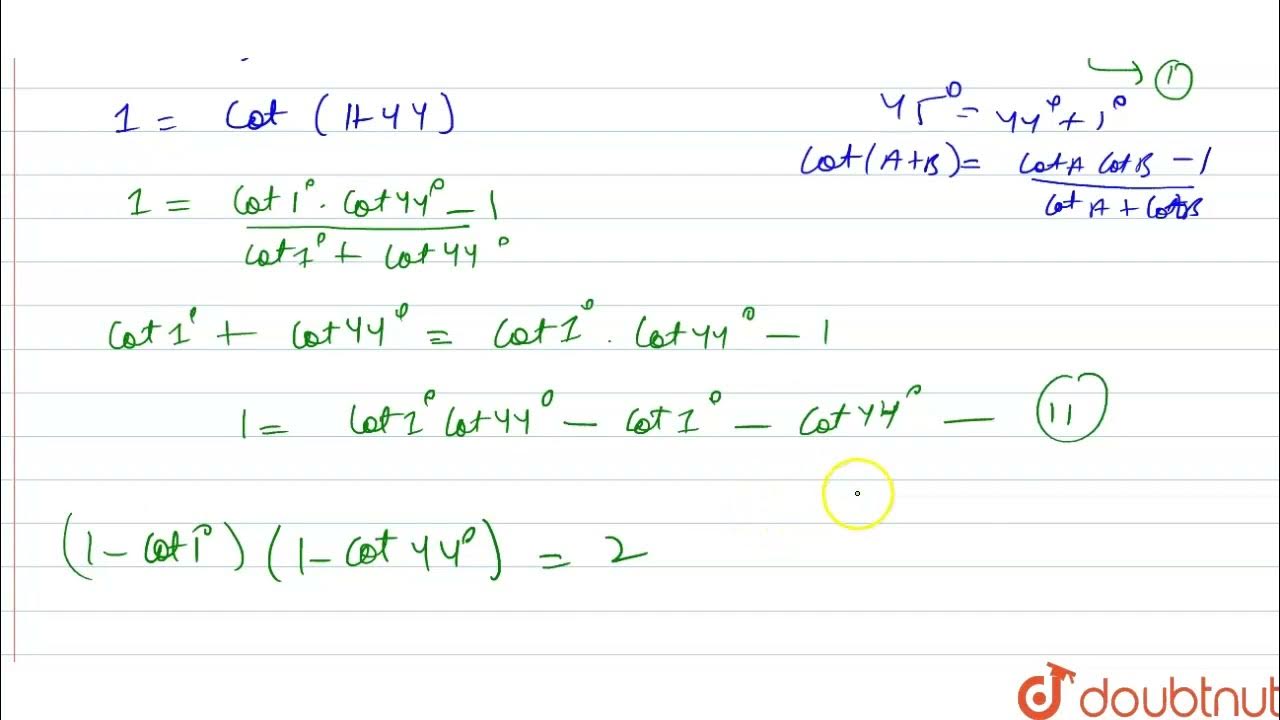 → (1)
1 = Cot (1+44)
45° = 44° + 1°
Cot(A+B) = CotA CotB - 1
Cot A + CotB
1 = Cot1° . Cot44° - 1
Cot1° + Cot44°
Cot1° + Cot44° = Cot1° . Cot44° - 1
1 = Cot1° Cot44° - Cot1° - Cot44° - (11)
(1 - Cot1°) (1 - Cot44°) = 2
doubtnut